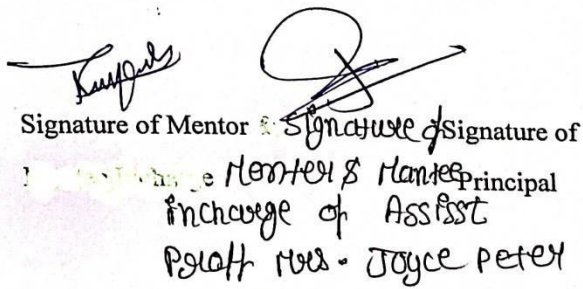 Signature of Mentor & Signature of Signature of
e Menter & Mantee Principal
incharge of Assisst
Proff Mrs. Joyce Peter